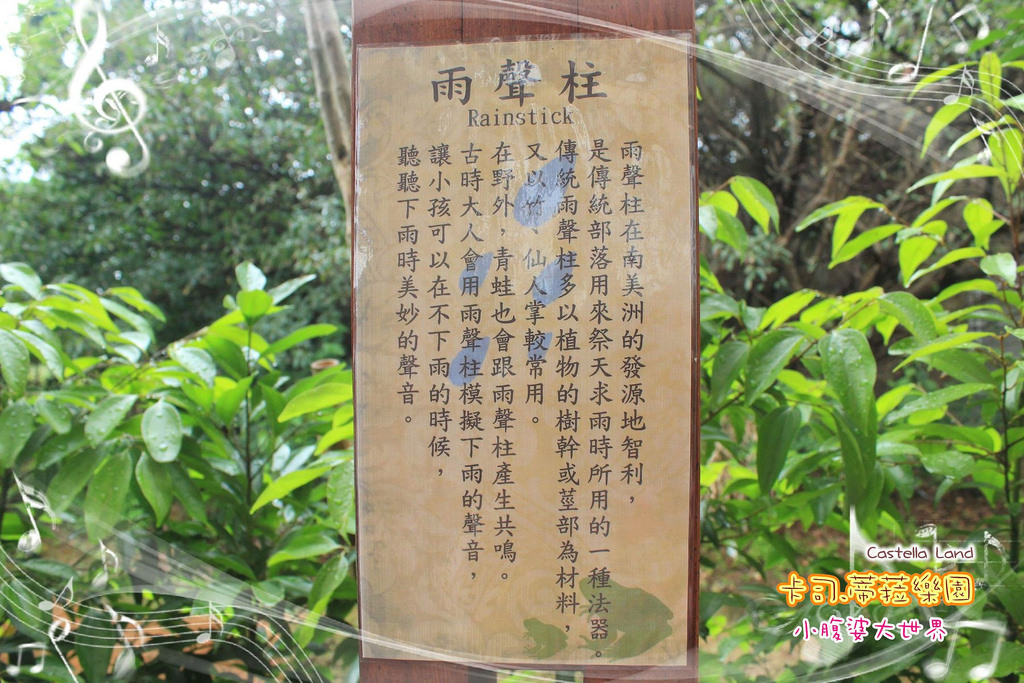 雨聲柱
Rainstick
雨聲柱在南美洲的發源地智利，
是傳統部落用來祭天求雨時所用的一種法器。
傳統雨聲柱多以植物的樹幹或莖部為材料，
又以竹、仙人掌較常用。
在野外，青蛙也會跟雨聲柱產生共鳴。
古時大人會用雨聲柱模擬下雨的聲音，
讓小孩可以在不下雨的時候，
聽聽下雨時美妙的聲音。
Castella Land
卡司.蒂菈樂園
小腹婆大世界